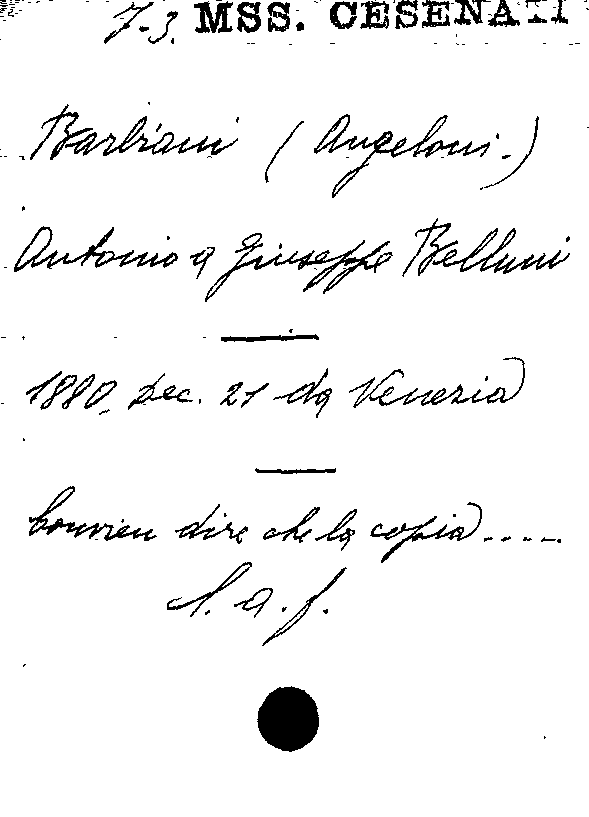 7-3. MSS. CESENATI
Barbiani (Angeloni.)
Antonio a Giuseppe Belluni
1880, Dec. 21 da Venezia
Convien dire che la copia.....
l. a. f.